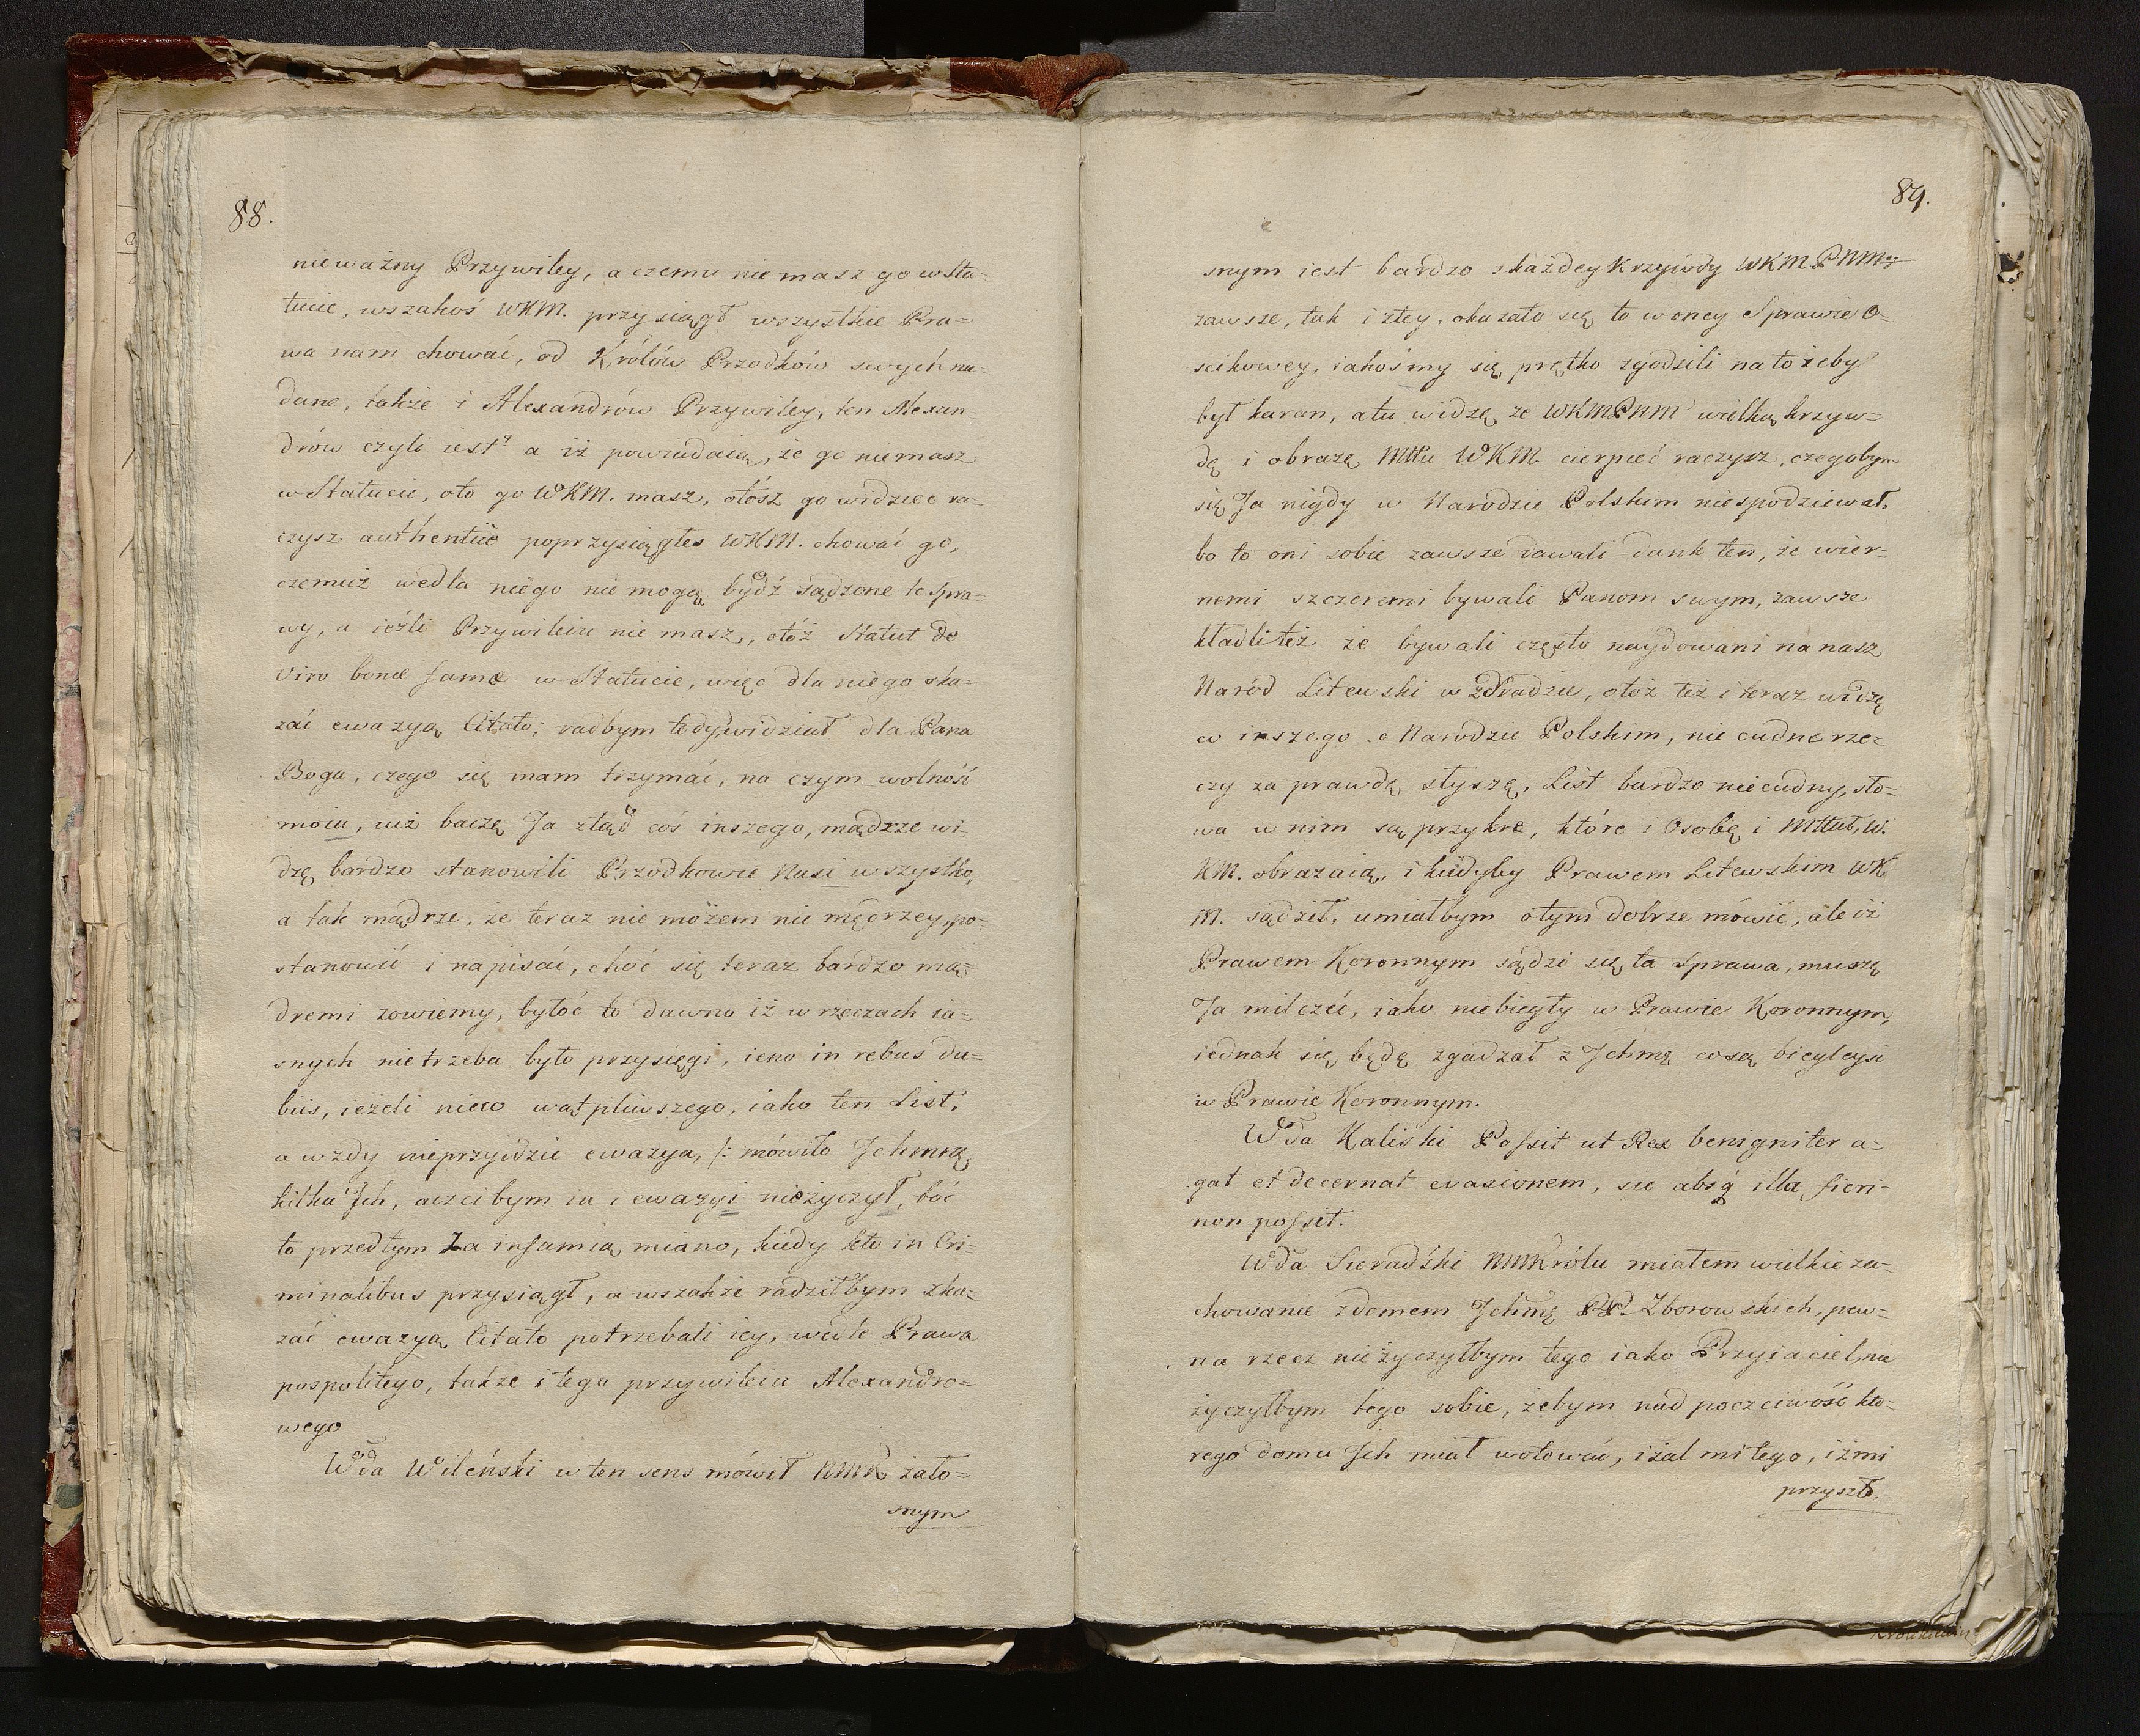 88.
nieważny Przywiley, a czemu nie masz go w Sta-
tucie, wszakoś WKM. przysiągł wszystkie Pra=
wa nam chować, od Królów Przodków swych na-
dane, także i Alexandrów Przywiley, ten Alexan
drów czyli iest? a iż powiadaią, że go niemasz
w Statucie, oto go WKM. masz, otósz go widziec ra-
czysz authentiie poprzysiągłes WKM. chować go,
czemuż wedla niego nie mogą bydź sądzone te Spra-
wy, a ieźli Przywileiu nie masz, otóż Statut de
viro bonæ famæ w Statucie, więc dla niego ska-
zać ewazyą Citato; radbym tedy widział dla Pana
Boga, czego się mam trzymać, na czym wolność
moia, iuż baczę Ja ztąd coś inszego, mądrze wi-
dzę bardzo stanowili Przodkowie Nasi wszystko,
a tak mądrze, że teraz nie możem nie mędrzey po-
stanowić i napisać, choć się teraz bardzo mą-
dremi zowiemy, byłoć to dawno iż w rzeczach ia=
snych nie trzeba było przysięgi, ieno in rebus du=
biis, ieżeli nieco wątpliwszego, iako ten List,
a wżdy nieprzyidzie ewazya, /: mówiło Jchmę
kilku Jch, aczcibym ia i ewazyi nieżyczył, boć
to przedtym Za infamią miano, kiedy kto in Cri-
minalibus przysiągł, a wszakże radziłbym ska-
zać ewazyą Citato potrzebali iey, wedle Prawa
pospolitego, także i tego przywileiu Alexandro=
wego
Wda Wileński w ten sens mówił NMK żało=
snym
89.
snym iest bardzo z każdey krzywdy WKM PNM
zawsze, tak i ztey, okazało się to w oney Sprawie O-
scikowey, iakośmy się prętko zgodzili na to żeby
był karan, a tu widzę że WKMPNM wielką krzyw=
dę i obrazę Mttu WKM. cierpieć raczysz, czegobym
się Ja nigdy w Narodzie Polskim niespodziewał,
bo to oni sobie zawsze dawali dank ten, że wier-
nemi szczeremi bywali Panom swym, zawsze
kładli też że bywali często naydowani na nasz
Naród Litewski w zdradzie, otoż też i teraz widzę
co inszego o Narodzie Polskim, nie cudne rze-
czy za prawdę słyszę, List bardzo niecudny, sło-
wa w nim są przykre, które i Osobę i Mttat, W.
KM. obrazaią, i kiedyby Prawem Litewskim WK
M. sądził, umiałbym otym dobrze mówić, ale iż
Prawem Koronnym sądzi się ta Sprawa, muszę
Ja milczeć, iako niebiegły w Prawie Koronnym,
iednak się będę zgadzał z Jchmę co są biegleysi
w Prawie Koronnym.
Wda Kaliski Possit ut Rex benigniter a=
gat et decernat evasionem, sic absq illa fieri-
non possit.
Wda Sieradźki NMKrólu miałem wielkie za-
chowanie z domem Jchmę PP. Zborowskich, pew-
na rzecz nie życzyłbym tego iako Przyiaciel, nie
życzyłbym tego sobie, żebym nad poczciwość któ-
rego domu Jch miał wotować, i żal mi tego, iż mi
przyszło.